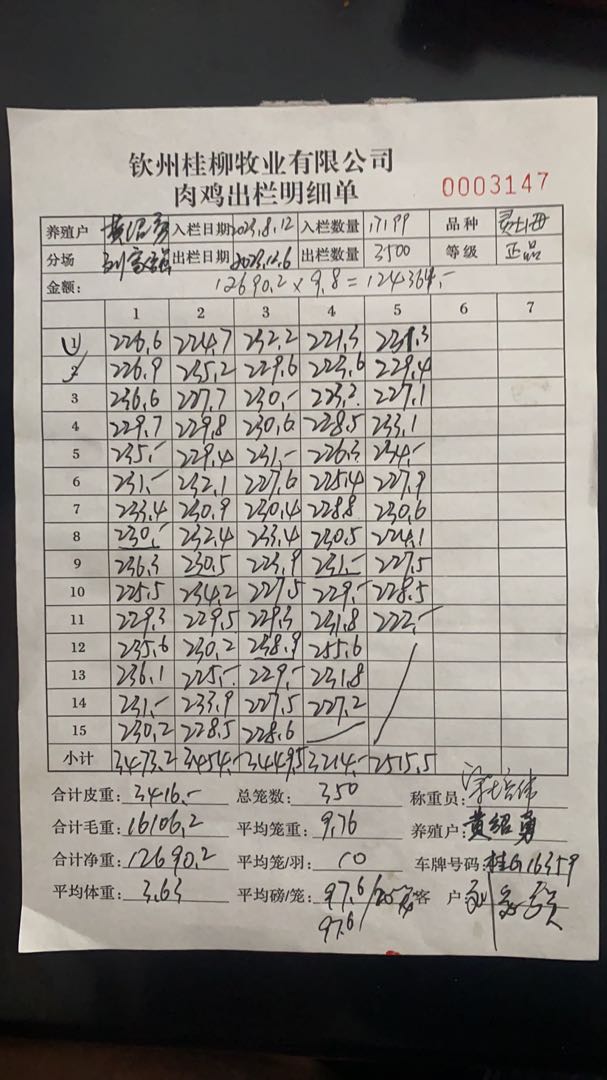 钦州桂柳牧业有限公司
肉鸡出栏明细单
0003147
养殖户 黄绍勇 入栏日期 2023.8.12 入栏数量 17199 品种
分场 出栏日期 2023.12.6 出栏数量 3500 等级 正品
金额: 12690.2 × 9.8 = 124364.-
1 2 3 4 5 6 7
1 226.6 224.7 232.2 221.3 231.3
2 226.9 235.2 229.6 223.6 229.4
3 236.6 227.7 230.- 223.2 227.1
4 229.7 229.8 230.6 228.5 233.1
5 235.- 229.4 231.- 226.3 234.-
6 231.- 232.1 227.6 225.4 227.9
7 233.4 230.9 230.4 228.8 230.6
8 230.- 232.4 233.4 230.5 224.1
9 236.3 230.5 223.9 231.- 227.5
10 225.5 234.2 227.5 229.- 228.5
11 229.3 229.5 229.3 231.8 222.-
12 235.6 230.2 238.9 255.6
13 236.1 225.- 229.- 231.8
14 231.- 233.9 227.5 227.2
15 230.2 228.5 228.6
小计 3473.2 3454.- 3449.5 3214.- 2515.5
合计皮重: 3416.- 总笼数: 350 称重员:
合计毛重: 16106.2 平均笼重: 9.76 养殖户: 黄绍勇
合计净重: 12690.2 平均笼/羽: 10 车牌号码: 桂G16359
平均体重: 3.63 平均磅/笼: 97.6/ 客 户
97.6